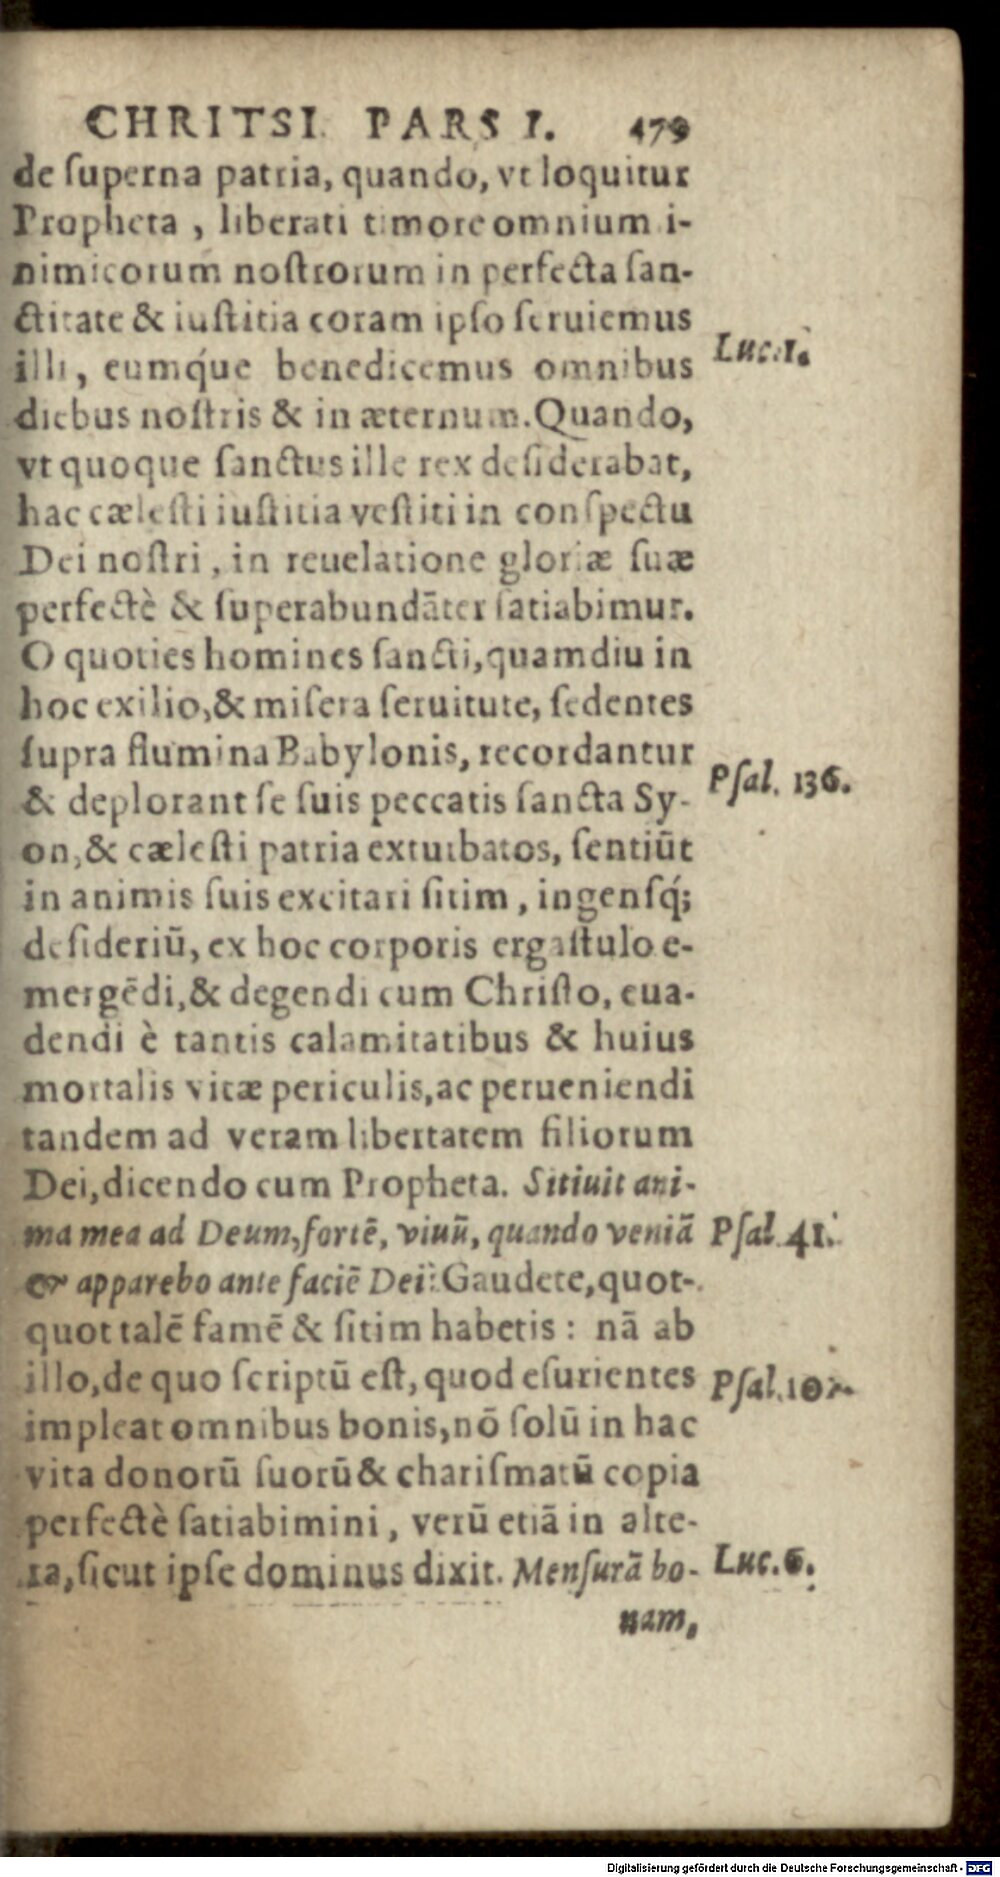 CHRITSI PARS I. 479
de ſuperna patria, quando, vt loquitur
Propheta, liberati timore omnium i-
nimicorum noſtrorum in perfecta ſan-
ctitate & iuſtitia coram ipſo ſeruiemus
illi, eumq́ue benedicemus omnibus
Luc. 1.
diebus noſtris & in æternum. Quando,
vt quoque ſanctus ille rex deſiderabat,
hac cæleſti iuſtitia veſtiti in conſpectu
Dei noſtri, in reuelatione gloriæ ſuæ
perfectè & ſuperabundāter ſatiabimur.
O quoties homines ſancti, quamdiu in
hoc exilio, & miſera ſeruitute, ſedentes
ſupra flumina Babylonis, recordantur
Pſal. 136.
& deplorant ſe ſuis peccatis ſancta Sy-
on, & cæleſti patria exturbatos, ſentiūt
in animis ſuis excitari ſitim, ingenſq́;
deſideriū, ex hoc corporis ergaſtulo e-
mergēdi, & degendi cum Chriſto, eua-
dendi è tantis calamitatibus & huius
mortalis vitæ periculis, ac perueniendi
tandem ad veram libertatem filiorum
Dei, dicendo cum Propheta. Sitiuit ani-
ma mea ad Deum, fortē, viuū, quando veniā
Pſal. 41.
& apparebo ante faciē Dei? Gaudete, quot-
quot talē famē & ſitim habetis: nā ab
illo, de quo ſcriptū eſt, quod eſurientes
Pſal. 102.
impleat omnibus bonis, nō ſolū in hac
vita donorū ſuorū & chariſmatū copia
perfectè ſatiabimini, verū etiā in alte-
ra, ſicut ipſe dominus dixit. Menſurā bo-
Luc. 6.
nam,
Digitalisierung gefördert durch die Deutsche Forschungsgemeinschaft - DFG